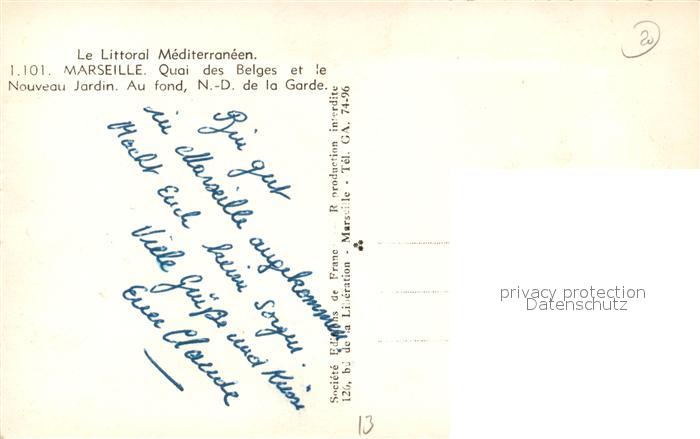 Le Littoral Méditerranéen.
1.101. MARSEILLE. Quai des Belges et le
Nouveau Jardin. Au fond, N.-D. de la Garde.
Bin gut
in Marseille angekommen.
Macht Euch keine Sorgen.
Viele Grüße und Küsse
Euer Claude
Société Editions de France - R production interdite
126, bd de la Libération - Marseille - Tél. GA. 74-96
20
13
privacy protection
Datenschutz